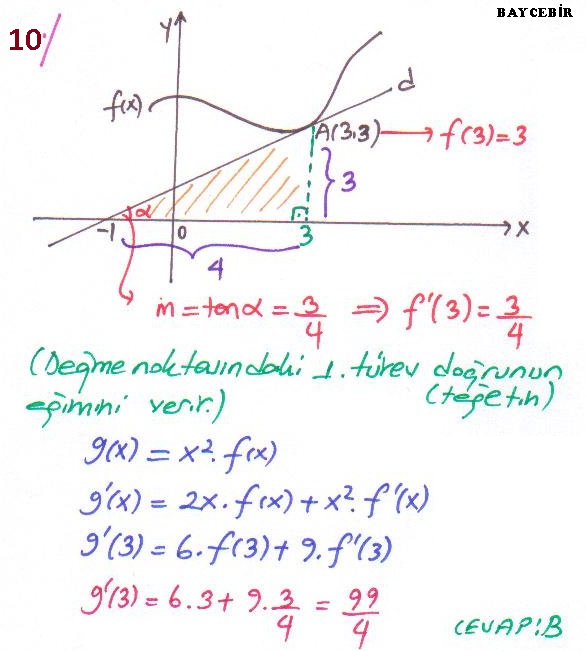 BAYCEBİR
10/
y
f(x)
d
A(3,3) → f(3)=3
3
α
-1 0 3 x
4
m = tanα = 3/4 ⇒ f'(3) = 3/4
(Değme noktasındaki 1. türev doğrunun
eğimini verir.) (teğetin)
g(x) = x². f(x)
g'(x) = 2x. f(x) + x². f'(x)
g'(3) = 6. f(3) + 9. f'(3)
g'(3) = 6.3 + 9. 3/4 = 99/4
CEVAP: B